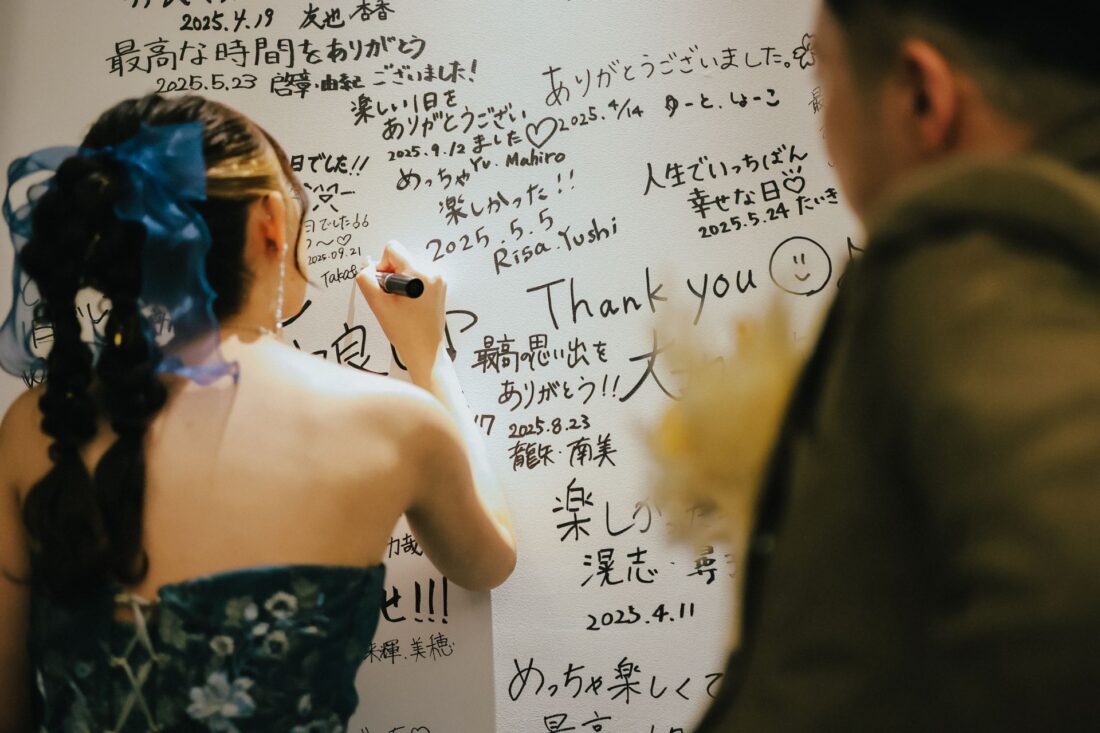 2025.4.19 友也・杏香
最高な時間をありがとう
ございました!
2025.5.23 啓章・由紀
楽しい1日を
ありがとうござい
ました♡
2025.9.12
Yu. Mahiro
ありがとうございました。
2025.4/14 ゆーと、しょーこ
日でした!!
めっちゃ
楽しかった!!
2025.5.5
Risa.Yushi
人生でいっちばん
幸せな日♡
2025.5.24 たいき
日でした
2025.09.21
Taka
Thank you
良
最高の思い出を
ありがとう!!
2025.8.23
龍矢・南美
17
大
楽しか
滉志・尋
2025.4.11
哉
せ!!!
来輝.美穂
めっちゃ楽しくて
最高